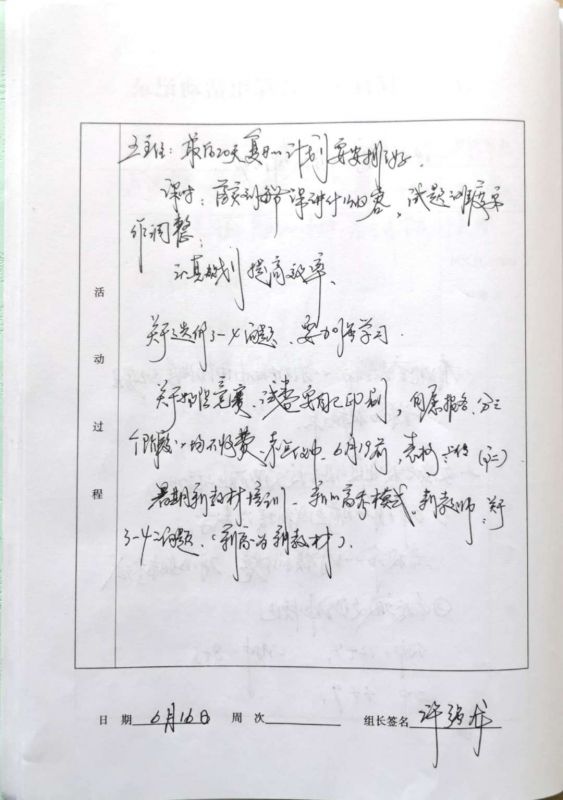 王主任：最后20天复习计划要安排好．
课时：落实到每节课讲什么内容，试题训练要
作调整；
认真计划 提高效率、
活动过程
关于选修3-4问题、要加强学习．
关于 竞赛、试卷要自己印刷，自愿报名、分三
个阶段、均不收费、 6月19前，
暑期新教材培训、新的高考模式、新教师、关于
3-4问题．（新高一为新教材）．
日 期 6月16日 周 次 组长签名 许